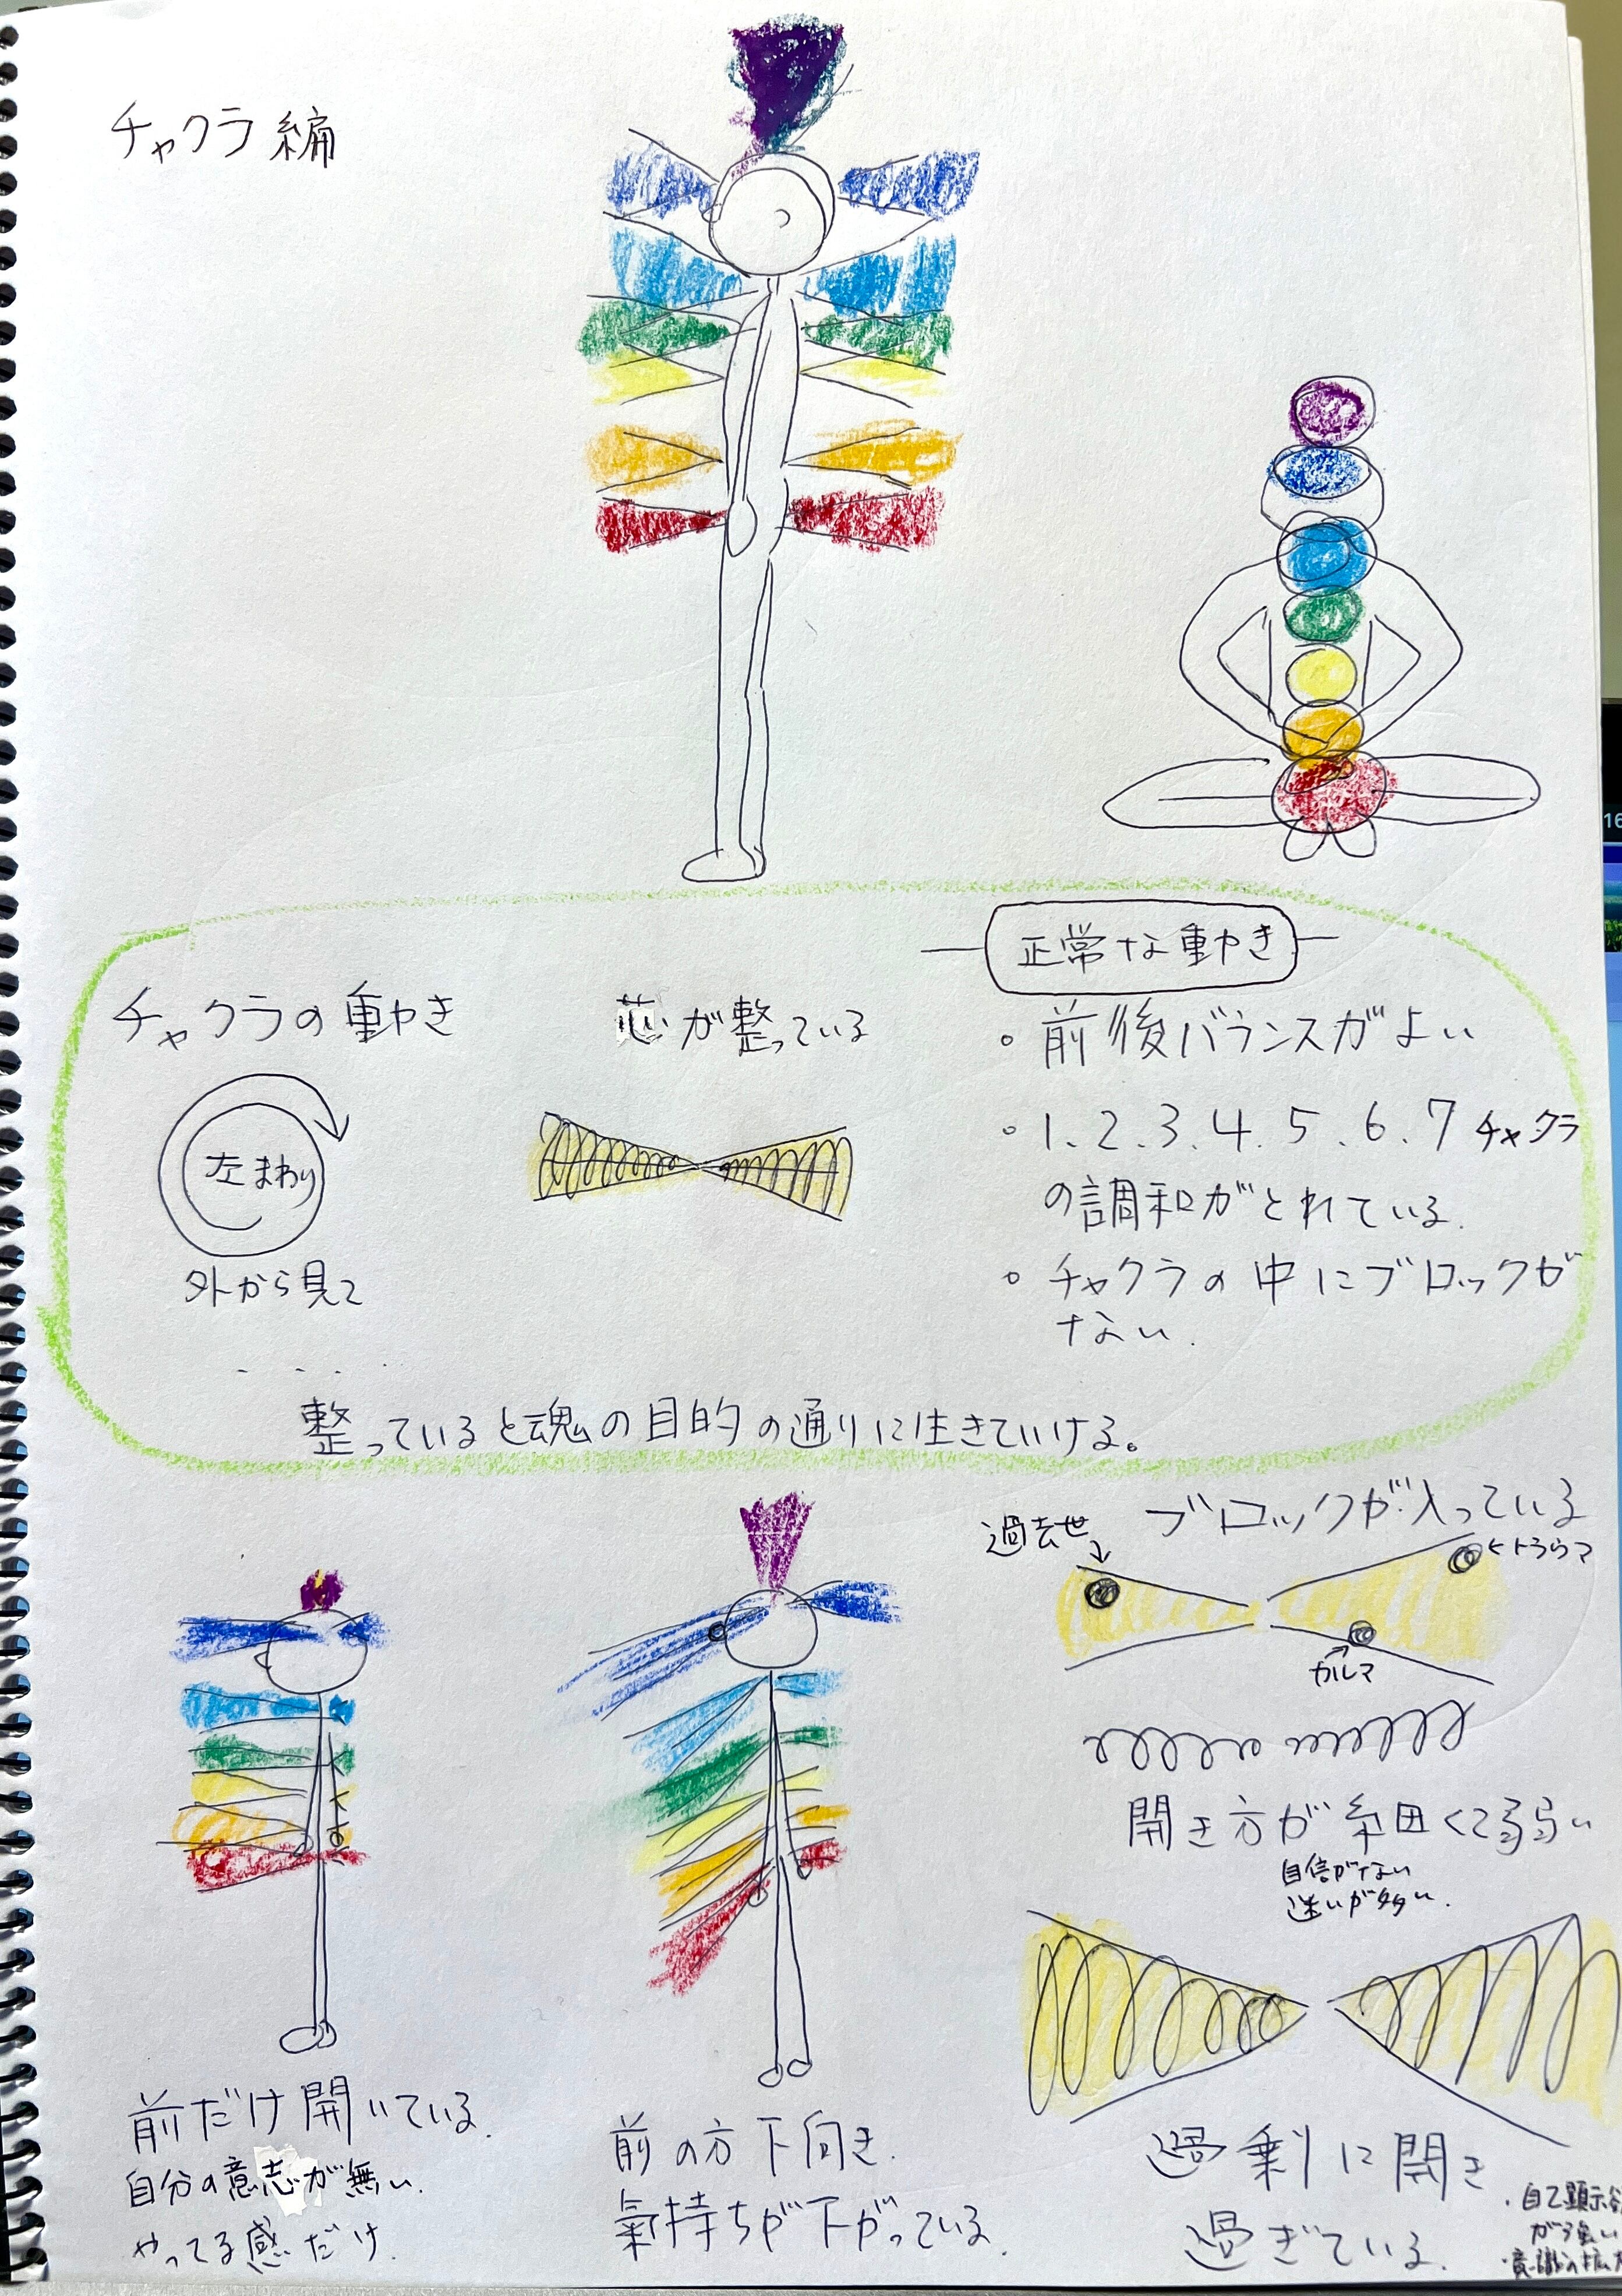 チャクラ編
正常な動き
チャクラの動き
左まわり
外から見て
芯が整っている
。前後バランスがよい
。1、2、3、4、5、6、7チャクラ
の調和がとれている。
。チャクラの中にブロックが
ない。
整っていると魂の目的の通りに生きていける。
前だけ開いている。
自分の意志が無い。
やってる感だけ。
前の方下向き。
氣持ちが下がっている。
ブロックが入っている
過去世
トラウマ
カルマ
開き方が細くて弱い
自信がない
迷いが多い。
過剰に開き
過ぎている。
・自己顕示
が強い
16